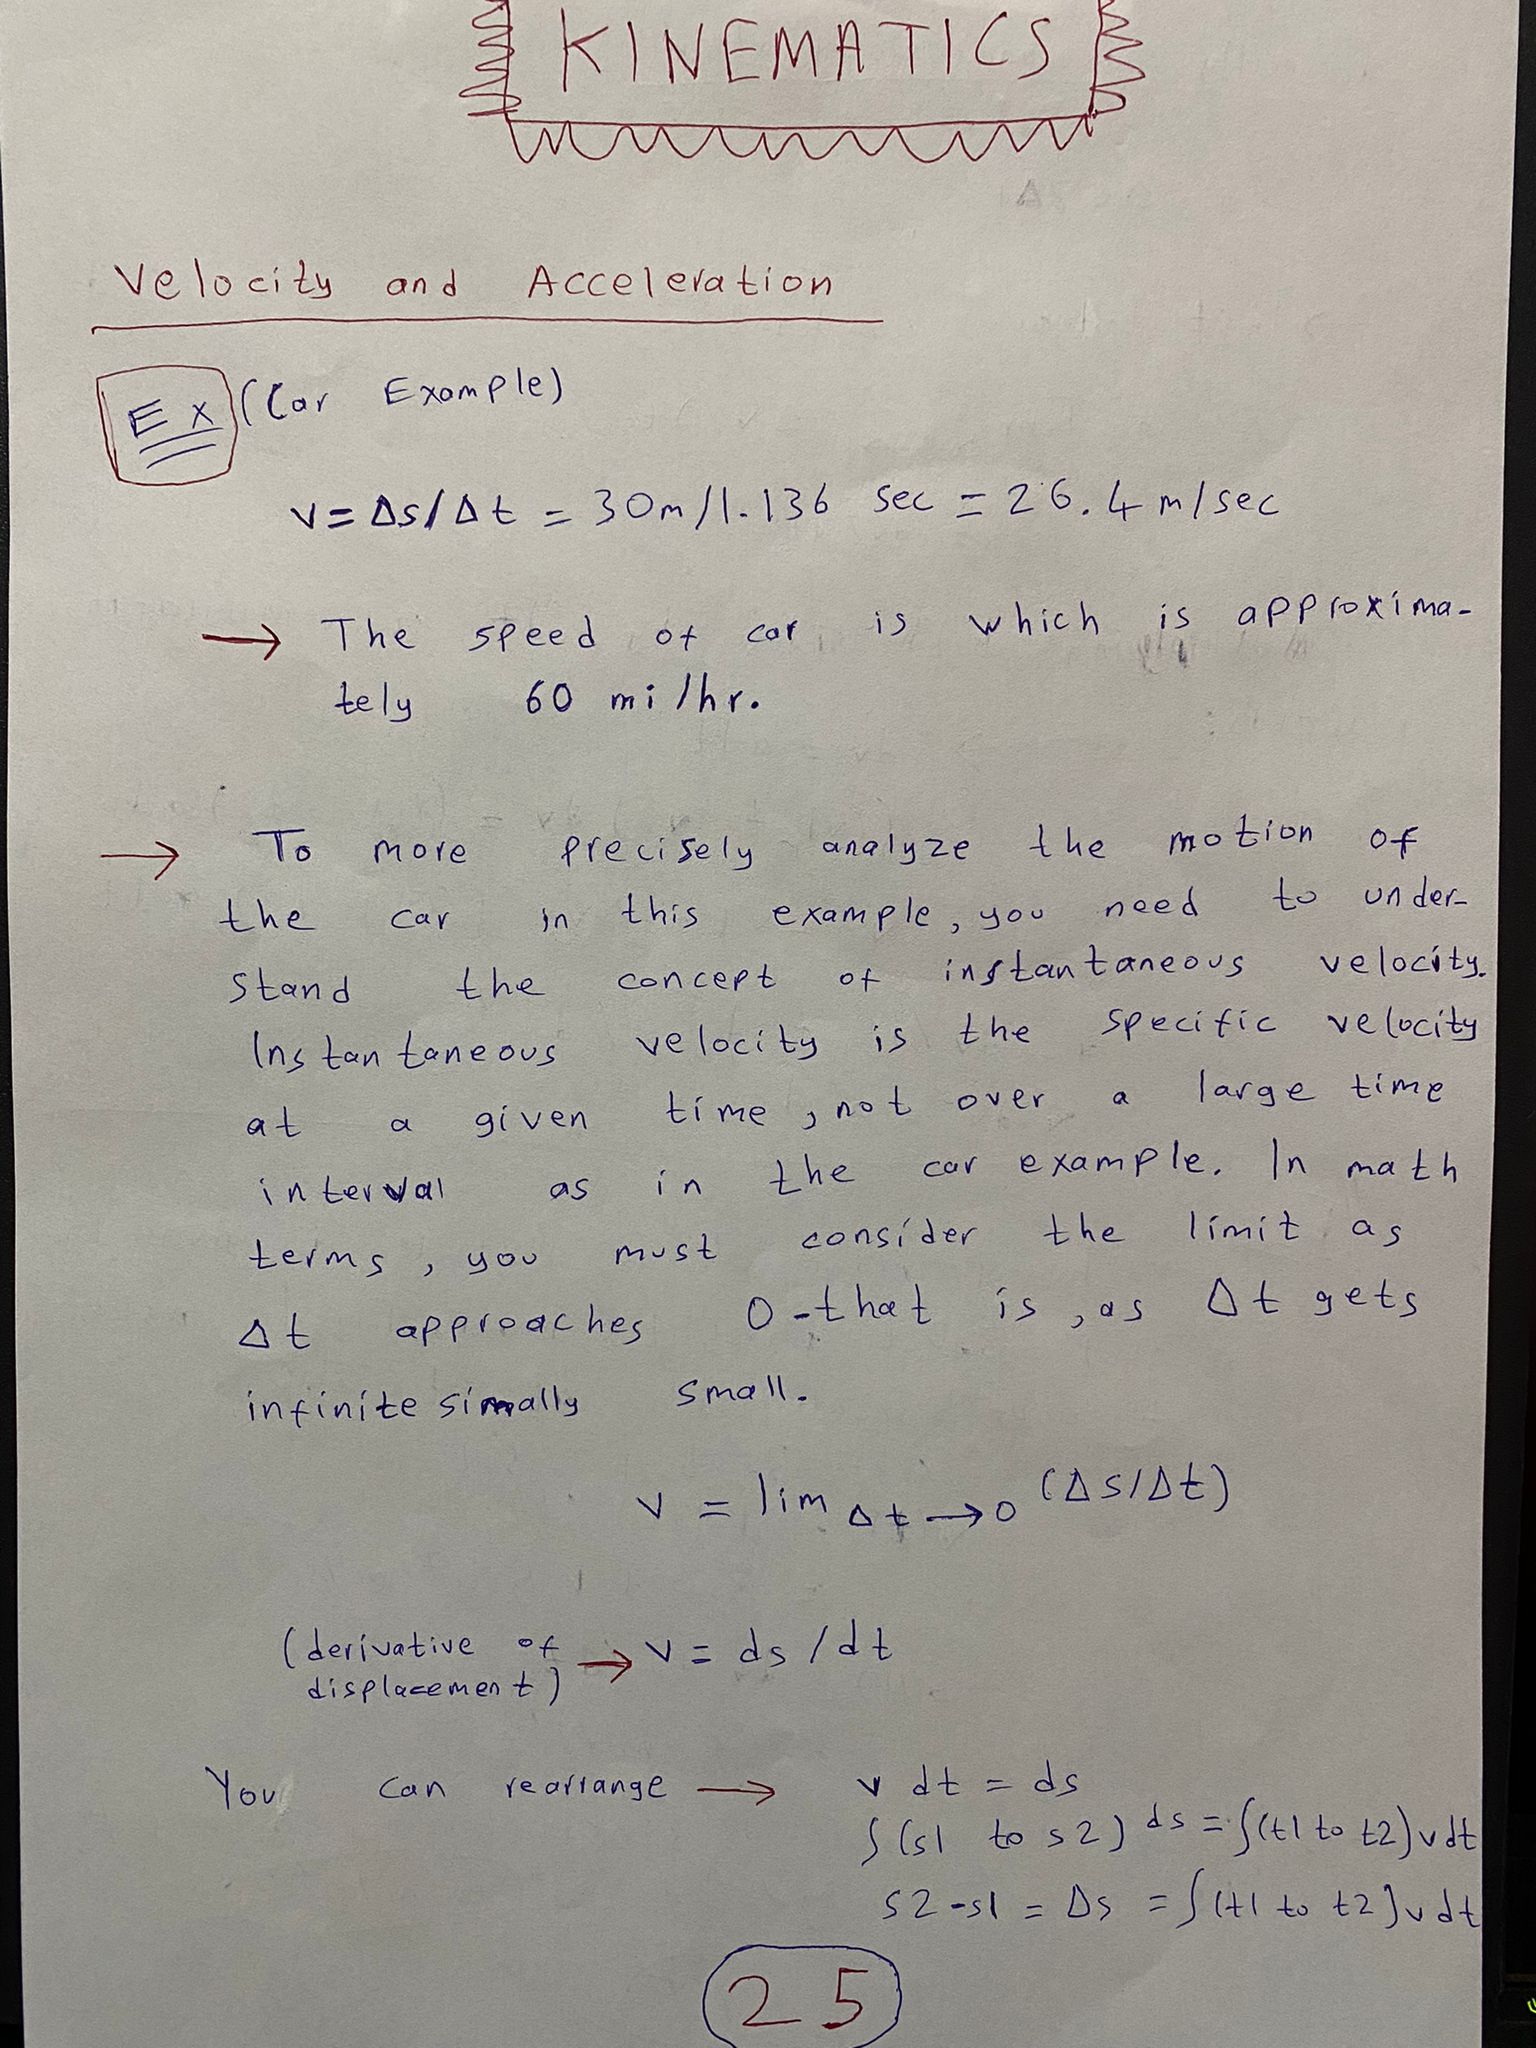 KINEMATICS
Velocity and Acceleration
Ex (Car Example)
v = Δs/Δt = 30m/1.136 sec = 26.4 m/sec
→ The speed of car is which is approxima-
tely 60 mi/hr.
→ To more precisely analyze the motion of
the car in this example, you need to under-
stand the concept of instantaneous velocity.
Instantaneous velocity is the specific velocity
at a given time, not over a large time
interval as in the car example. In math
terms, you must consider the limit as
Δt approaches 0 - that is, as Δt gets
infinitesimally small.
v = lim Δt → 0 (Δs/Δt)
(derivative of → v = ds/dt
displacement)
You can rearrange → v dt = ds
∫(s1 to s2) ds = ∫(t1 to t2) v dt
s2 - s1 = Δs = ∫(t1 to t2) v dt
25